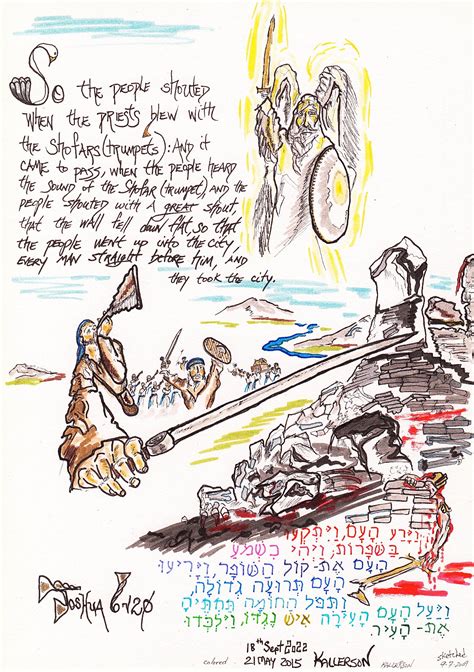 So the people shouted
when the priests blew with
the shofars (trumpets): and it
came to pass, when the people heard
the sound of the shofar (trumpet), and the
people shouted with a great shout,
that the wall fell down flat, so that
the people went up into the city,
every man straight before him, and
they took the city.
וַיָּרַע הָעָם, וַיִּתְקְעוּ
בַּשֹּׁפָרוֹת, וַיְהִי כִשְׁמֹעַ
הָעָם אֶת-קוֹל הַשּׁוֹפָר, וַיָּרִיעוּ
הָעָם תְּרוּעָה גְדוֹלָה,
וַתִּפֹּל הַחוֹמָה תַּחְתֶּיהָ
וַיַּעַל הָעָם הָעִירָה אִישׁ נֶגְדּוֹ, וַיִּלְכְּדוּ
אֶת-הָעִיר.
Joshua 6v20
18th Sept 2022
colored 21 May 2015 Kallerson Kallerson sketched